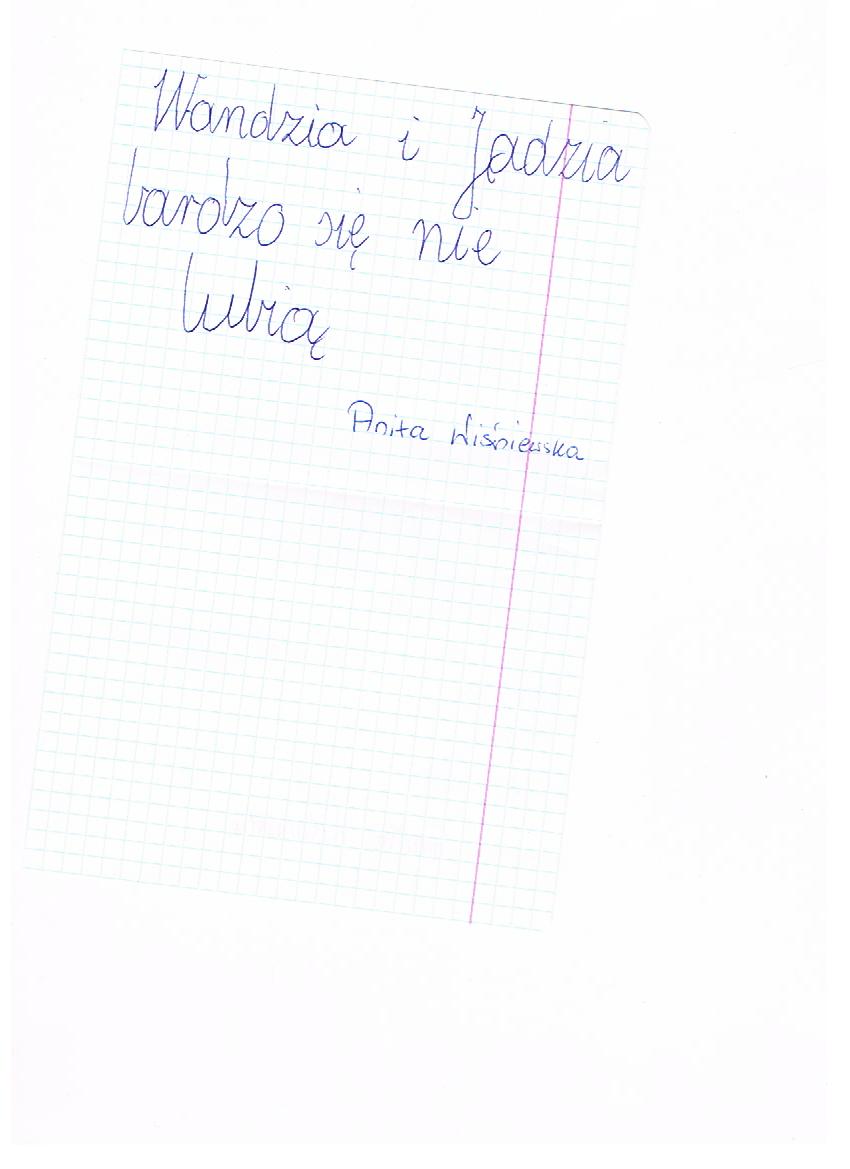 Wandzia i Jadzia
bardzo się nie
lubią
Anita Wiśniewska